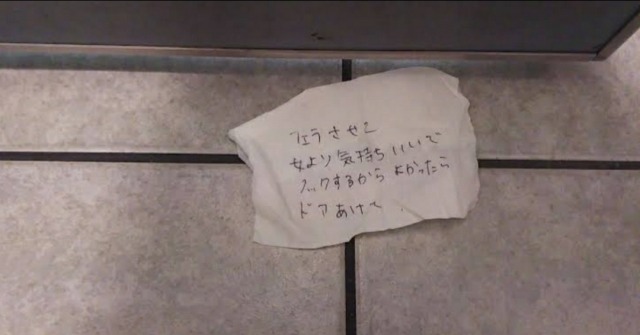 フェラさせて
女より気持ちいいで
ノックするからよかったら
ドアあけて